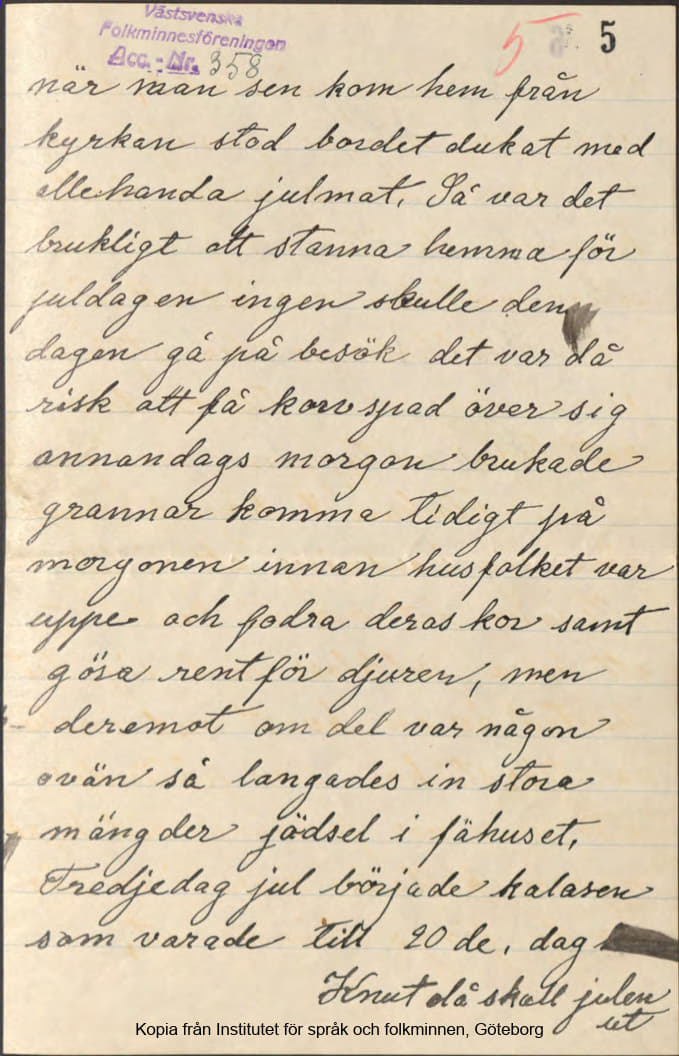 Västsvenska
Folkminnesföreningen
Acc.-Nr. 358
5 5
när man sen kom hem från
kyrkan stod bordet dukat med
allehanda julmat. Så var det
brukligt att stanna hemma för
juldagen ingen skulle den
dagen gå på besök det var då
risk att få korvspad över sig
annandags morgon brukade
grannar komma tidigt på
morgonen innan husfolket var
uppe och fodra deras kor samt
gösa rent för djuren, men
deremot om det var någon
ovän så langades in stora
mängder jödsel i fähuset,
Tredjedag jul började kalasen
som varade till 20de, dag
Knut då skall julen
ut
Kopia från Institutet för språk och folkminnen, Göteborg